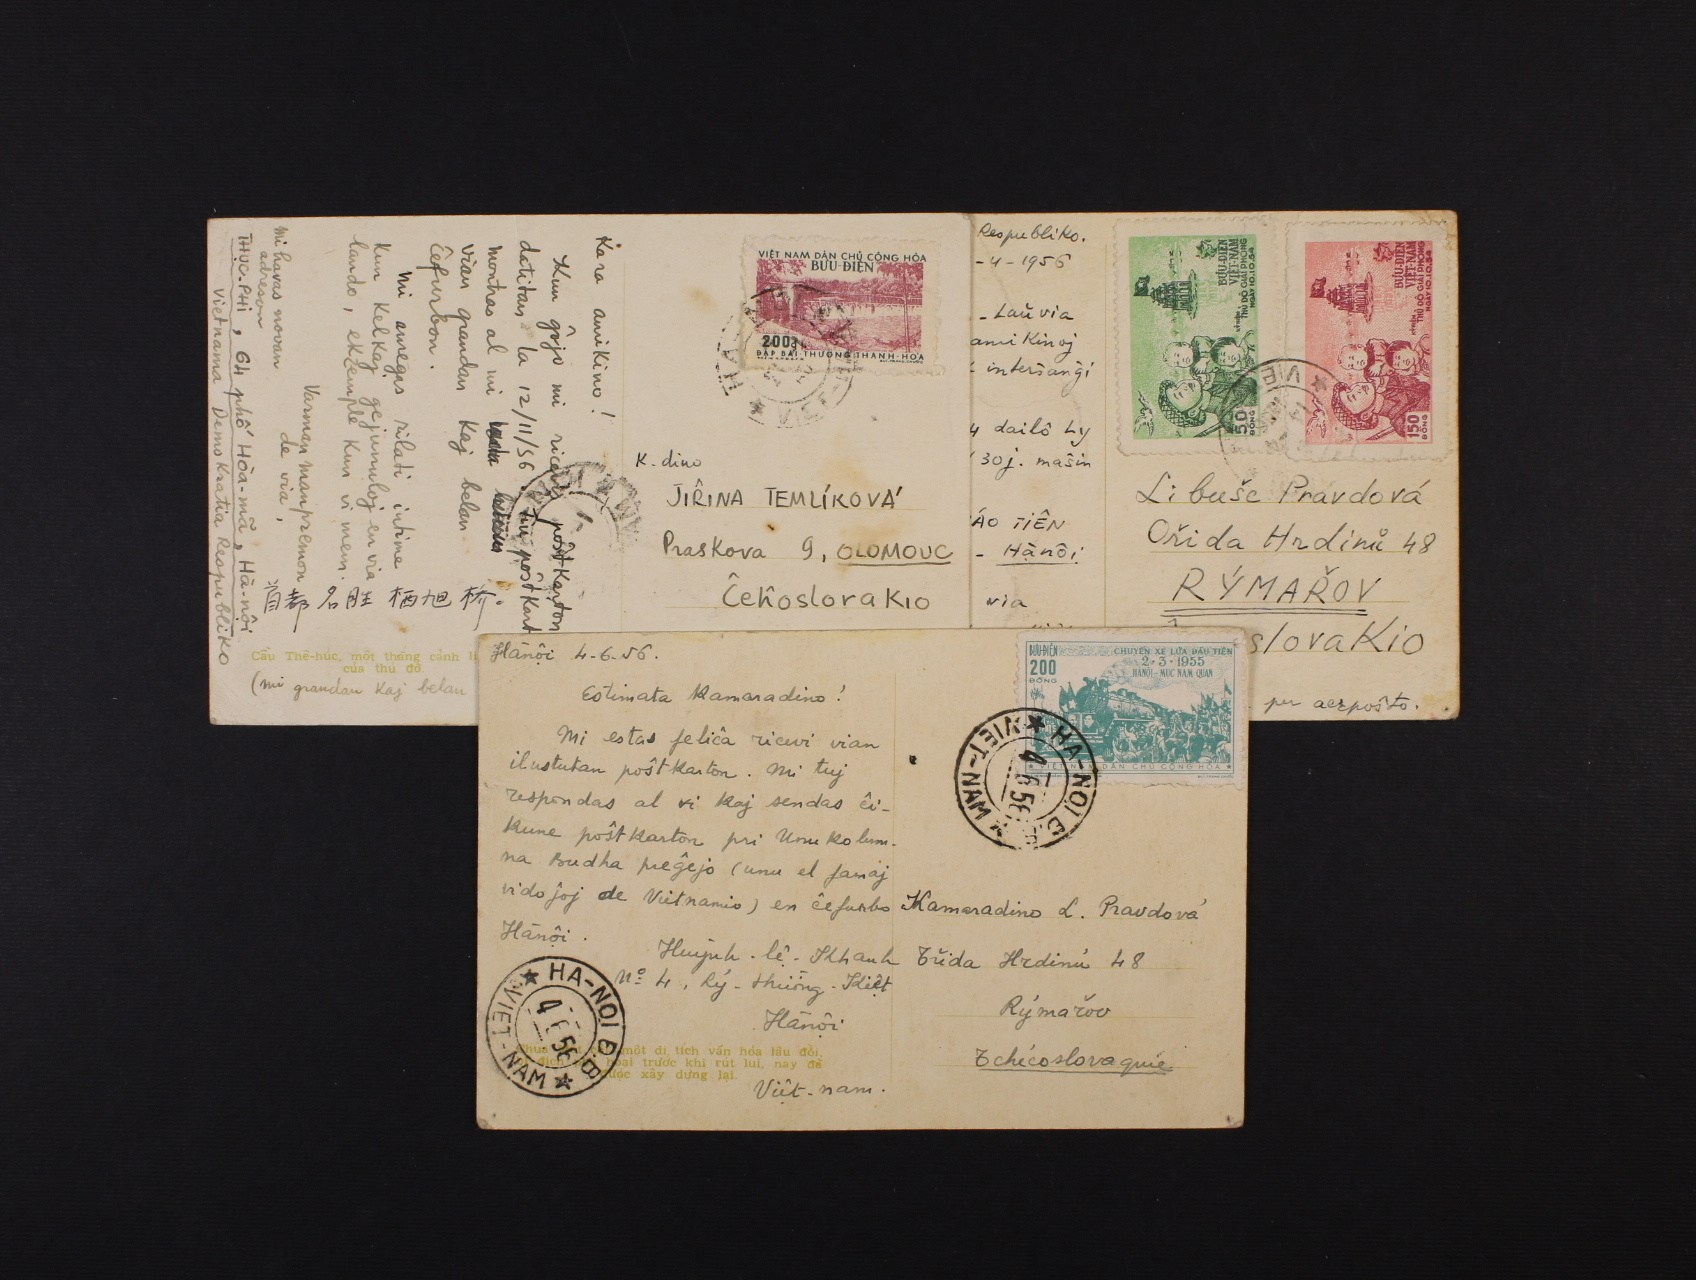 Kara amikino!
Kun ĝojo mi ricevis poŝtkarton
datitan la 12/11/56. Tiu poŝtkart
montras al mi
vian grandan kaj belan
ĉefurbon.
Mi amegas rilati intime
kun kelkaj gejunuloj en via
lando, ekzemple kun vi mem.
Varman manpremon
de via,
Mi havas novan
adreson
THỤC-PHI, 64 phố Hòa-mã, Hà-nội
Vietnama Demokratia Respubliko
首都名胜栖旭桥.
Cầu Thê-húc, một thắng cảnh
của thủ đô.
(mi grandan kaj belan
VIỆT NAM DÂN CHỦ CỘNG HÒA
BƯU-ĐIỆN
200đ
ĐẬP BÁI THƯỢNG THANH-HÓA
K-dino
JIŘINA TEMLÍKOVÁ
Praskova 9, OLOMOUC
Ĉeĥoslovakio
Respubliko.
-4-1956
- Laŭ via
amikinoj
interŝanĝi
4 dailô Ly
30j. maŝin
ÁO TIÊN
- Hànôi
via
BƯU-ĐIỆN
VIỆT-NAM
THỦ ĐÔ GIẢI PHÓNG
NGÀY 10.10.54
50
ĐỒNG
BƯU-ĐIỆN
VIỆT-NAM
THỦ ĐÔ GIẢI PHÓNG
NGÀY 10.10.54
150
ĐỒNG
Libuše Pravdová
Třida Hrdinů 48
RÝMAŘOV
slovakio
per aerpoŝto.
Hànội 4-6-56.
Estimata kamaradino!
Mi estas feliĉa ricevi vian
ilustritan poŝtkarton. Mi tuj
respondas al vi kaj sendas ĉi-
kune poŝtkarton pri Unu kolum-
na Budha preĝejo (unu el famaj
vidaĵoj de Vietnamio) en ĉefurbo
Hànội.
Huỳnh-lê-Khanh
Nº 4, Lý-thường-Kiệt
Hànội
Việt-nam.
một di tích văn hóa lâu đời,
hoại trước khi rút lui, nay đã
được xây dựng lại.
HA-NỘI Đ.B
4 6 56
VIET-NAM
BƯU-ĐIỆN
200
ĐỒNG
CHUYẾN XE LỬA ĐẦU TIÊN
2-3-1955
HANÔI - MỤC NAM QUAN
VIỆT NAM DÂN CHỦ CỘNG HÒA
HA-NỘI Đ.B
4 6 56
VIET-NAM
Kamaradino L. Pravdová
Třida Hrdinů 48
Rýmařov
Tchécoslovaquie